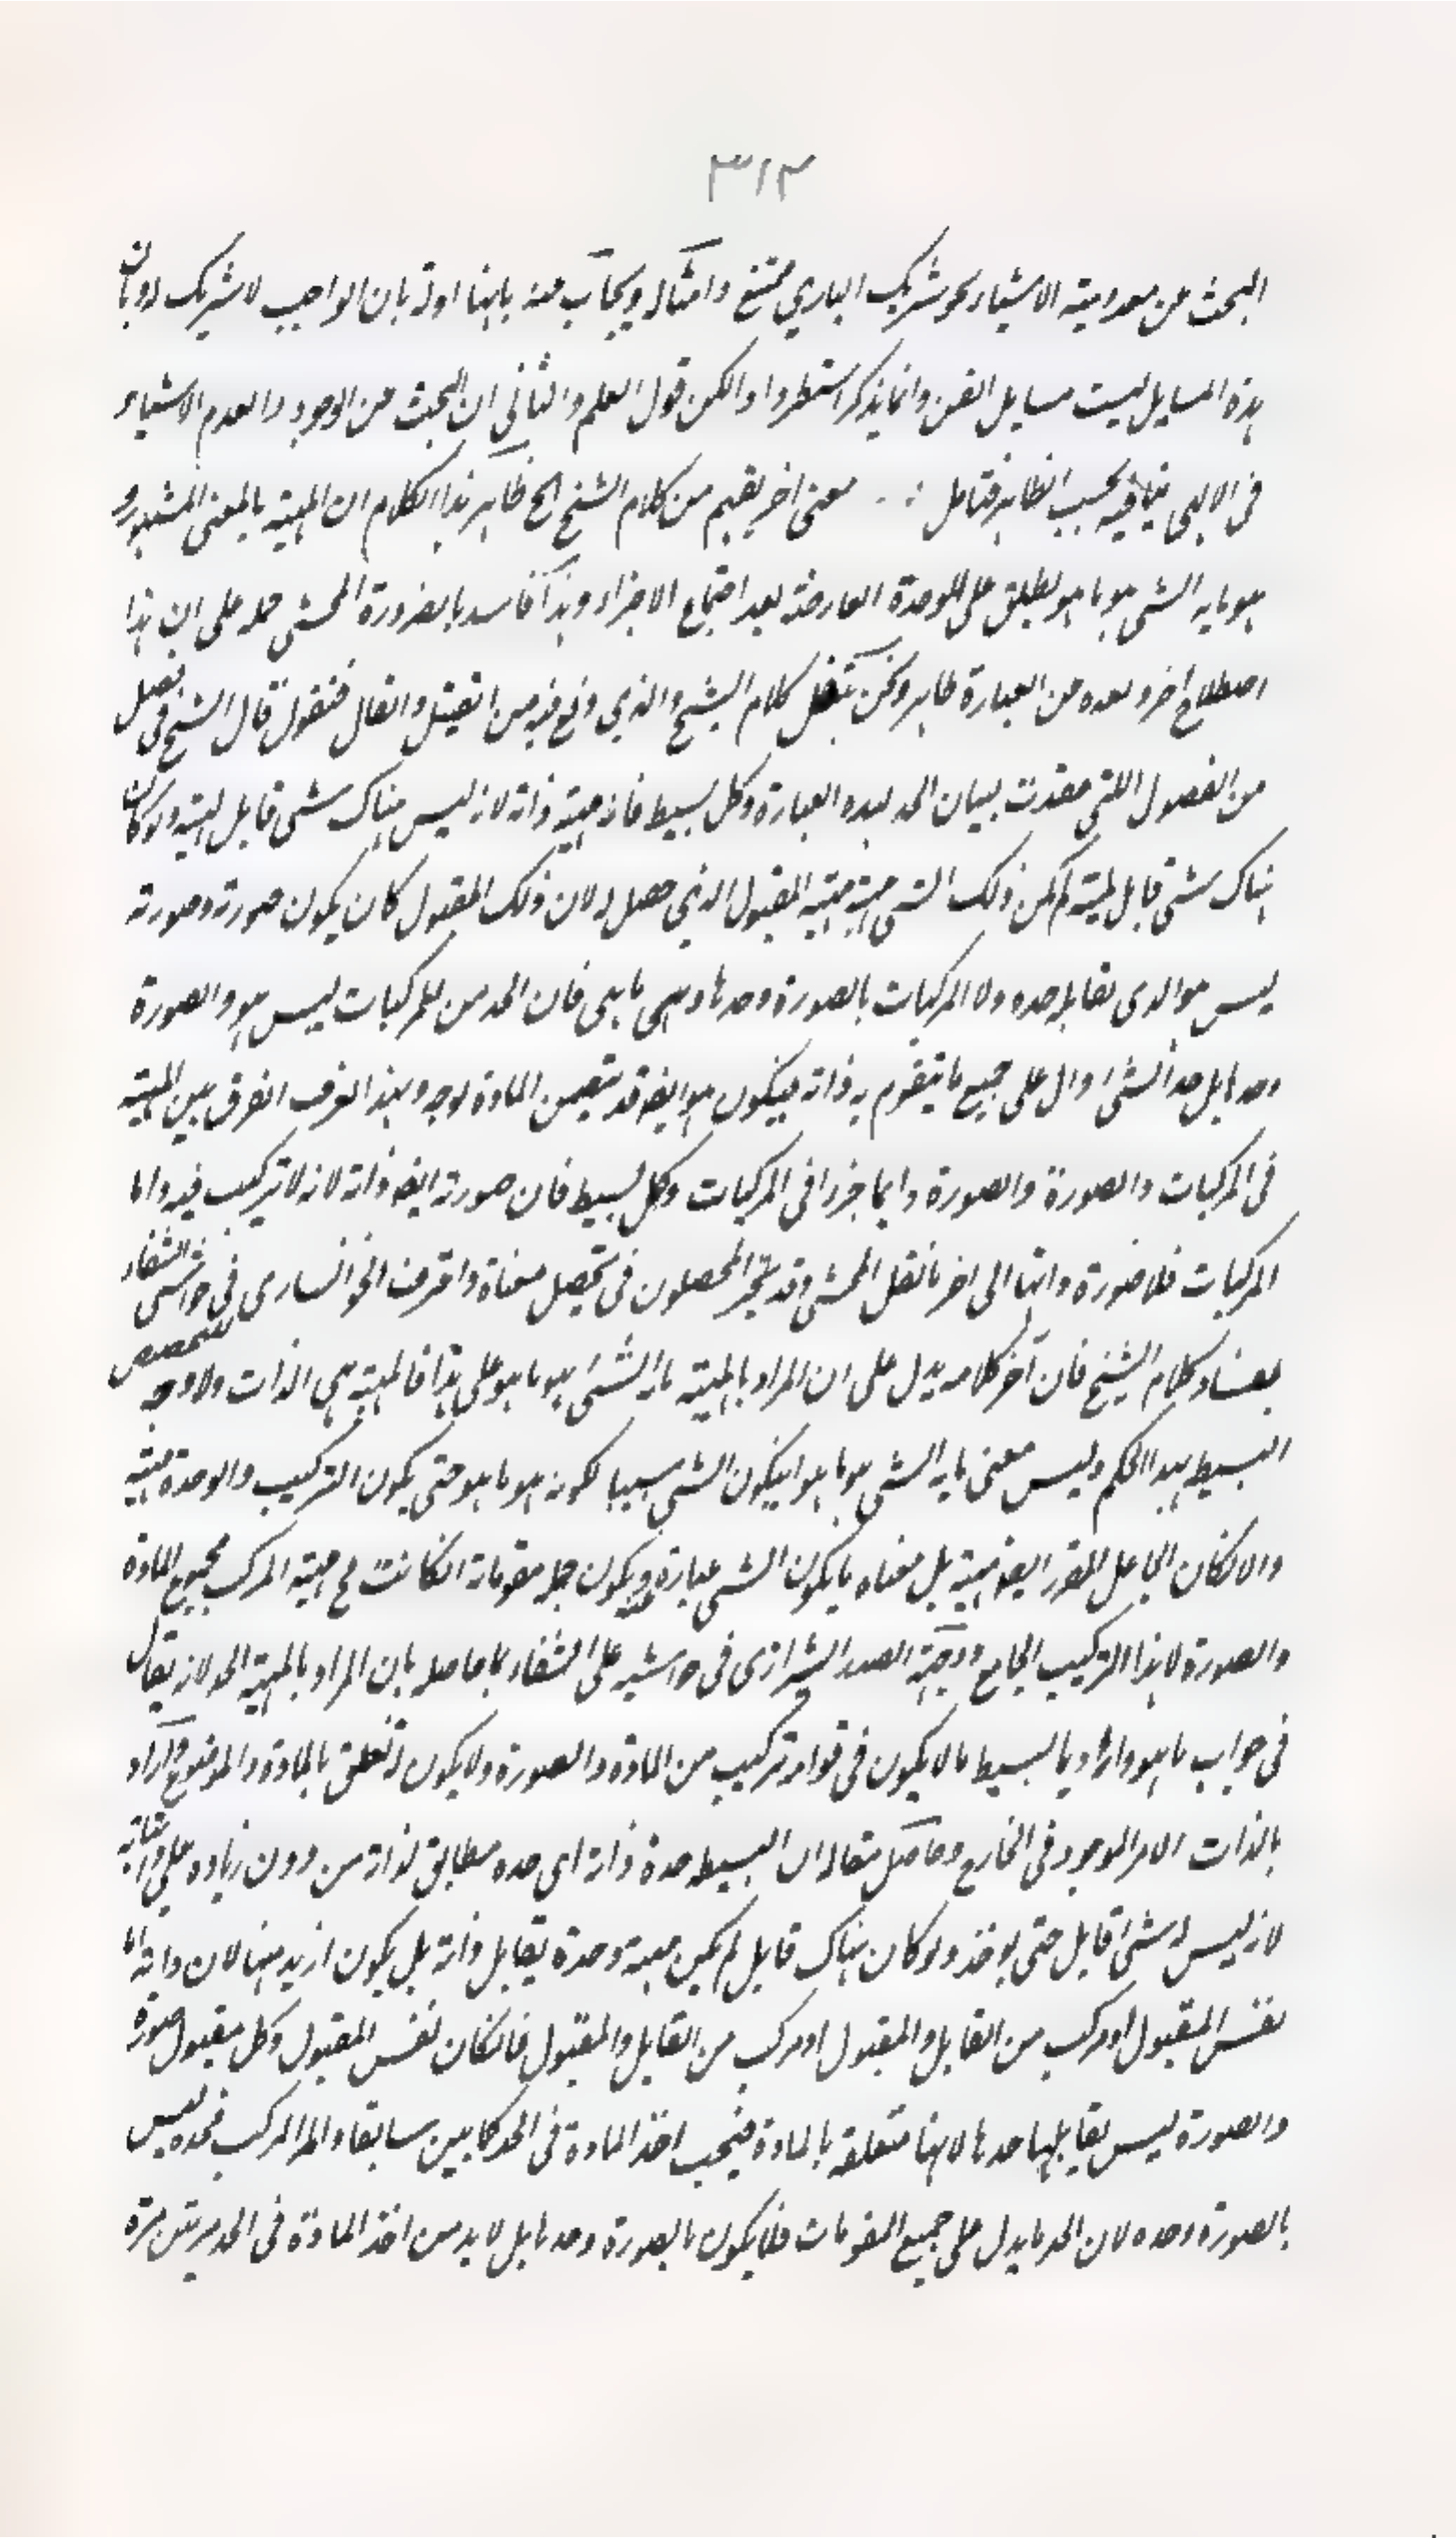 ٣١٣
البحث من معدومية الاشياء نحو شريك الباري ممتنع وامثاله ويجاب عنه بانها اولة بان الواجب لا شريك له وبان
هذه المسايل ليست مسايل الفن وانما يذكر استطرادا ولكن قول العلم والثاني ان البحث من الوجود والعدم الاشياء
في الالهي ينافيه بحسب الظاهر فتامل : . . معنى اخر يفهم من كلام الشيخ الخ ظاهر هذا الكلام ان المهية بالمعنى المشهور و
هو ما به الشي هو ما هو يطلق على الوحدة العارضة بعد اجتماع الاجزاء وهذا فاسد بالضرورة المحشي حمله على ان هذا
اصطلاح اخر وبعده من العبارة ظاهر ونحن ننقل كلام الشيخ والذي وقع فيه من القيل والقال فنقول قال الشيخ في فصل
من الفصول اللتي عقدت ببيان الحد بهذه العبارة وكل بسيط فان مهيته ذاته لانه ليس هناك شي قابل لمهيته ولو كان
هناك شي قابل لمهيته لم يكن ذلك الشي مهيته مهية المقبول الذي حصل له لان ذلك المقبول كان يكون صورته وصورته
ليس هو الذي يقابله حده ولا المركبات بالصورة وحدها وهي ما هي فان الحد من للمركبات ليس هو والصورة
وحدها بل حد الشئ دال على جميع ما يتقوم به ذاته فيكون هو ايضا قد يتضمن المادة بوجه وبهذا يعرف الفرق بين المهية
في المركبات والصورة والصورة دايما جزء في المركبات وكل بسيط فان صورته ايضا ذاته لانه لا تركيب فيه واما
المركبات فلا صورة ذاتها الى اخر ما نقل المحشي وقد تحير المحصلون في تحصيل معناه واعترف الخوانساري في حواشي الشفاء
بفساد كلام الشيخ فان آخر كلامه يدل على ان المراد بالمهية ما به الشئ هو ما هو على هذا فالمهية هي الذات ولا وجه لتخصيص
البسيط بهذا الحكم وليس معنى ما به الشي هو ما هو ان يكون الشي سببا لكونه هو ما هو حتى يكون التركيب والوحدة مهيته
والا لكان الجاعل المقرر ايضا مهية بل معناه ما يكون الشي عبارة ويكون جملة مقوماته الكانت مع مهية المركب مجموع المادة
والصورة لا هذا التركيب الجامع ووجهه الصدر الشيرازي في حواشيه على الشفاء بما حاصله بان المراد بالمهية الحد لانه يقال
في جواب ما هو واراد بالبسيط ما لا يكون في قوامه تركيب من المادة والصورة ولا يكون له تعلق بالمادة والموضوع واراد
بالذات الامر الموجود في الخارج وحاصل مقاله ان البسيط حده ذاته اي حده مطابق لذاته من دون زياده على ذاته
لانه ليس له شئ قابل حتى يوخذ ولو كان هناك قابل لم يكن مهيته وحده يقابل ذاته بل يكون ازيد منها لان ذاته اما
نفس المقبول او مركب من القابل والمقبول او مركب من القابل والمقبول فانكان نفس المقبول وكل مقبول صورة
والصورة ليس يقابلها حدها لانها متعلقه بالمادة فيجب اخذ المادة في الحد كما بين سابقا واما المركب فحده ليس
بالصورة وحده لان الحد ما يدل على جميع المقومات فلا يكون بالصورة وحدها بل لا بد من اخذ المادة في الحد مرتين مرة